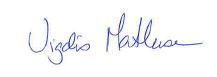 Vigdis Mathisen